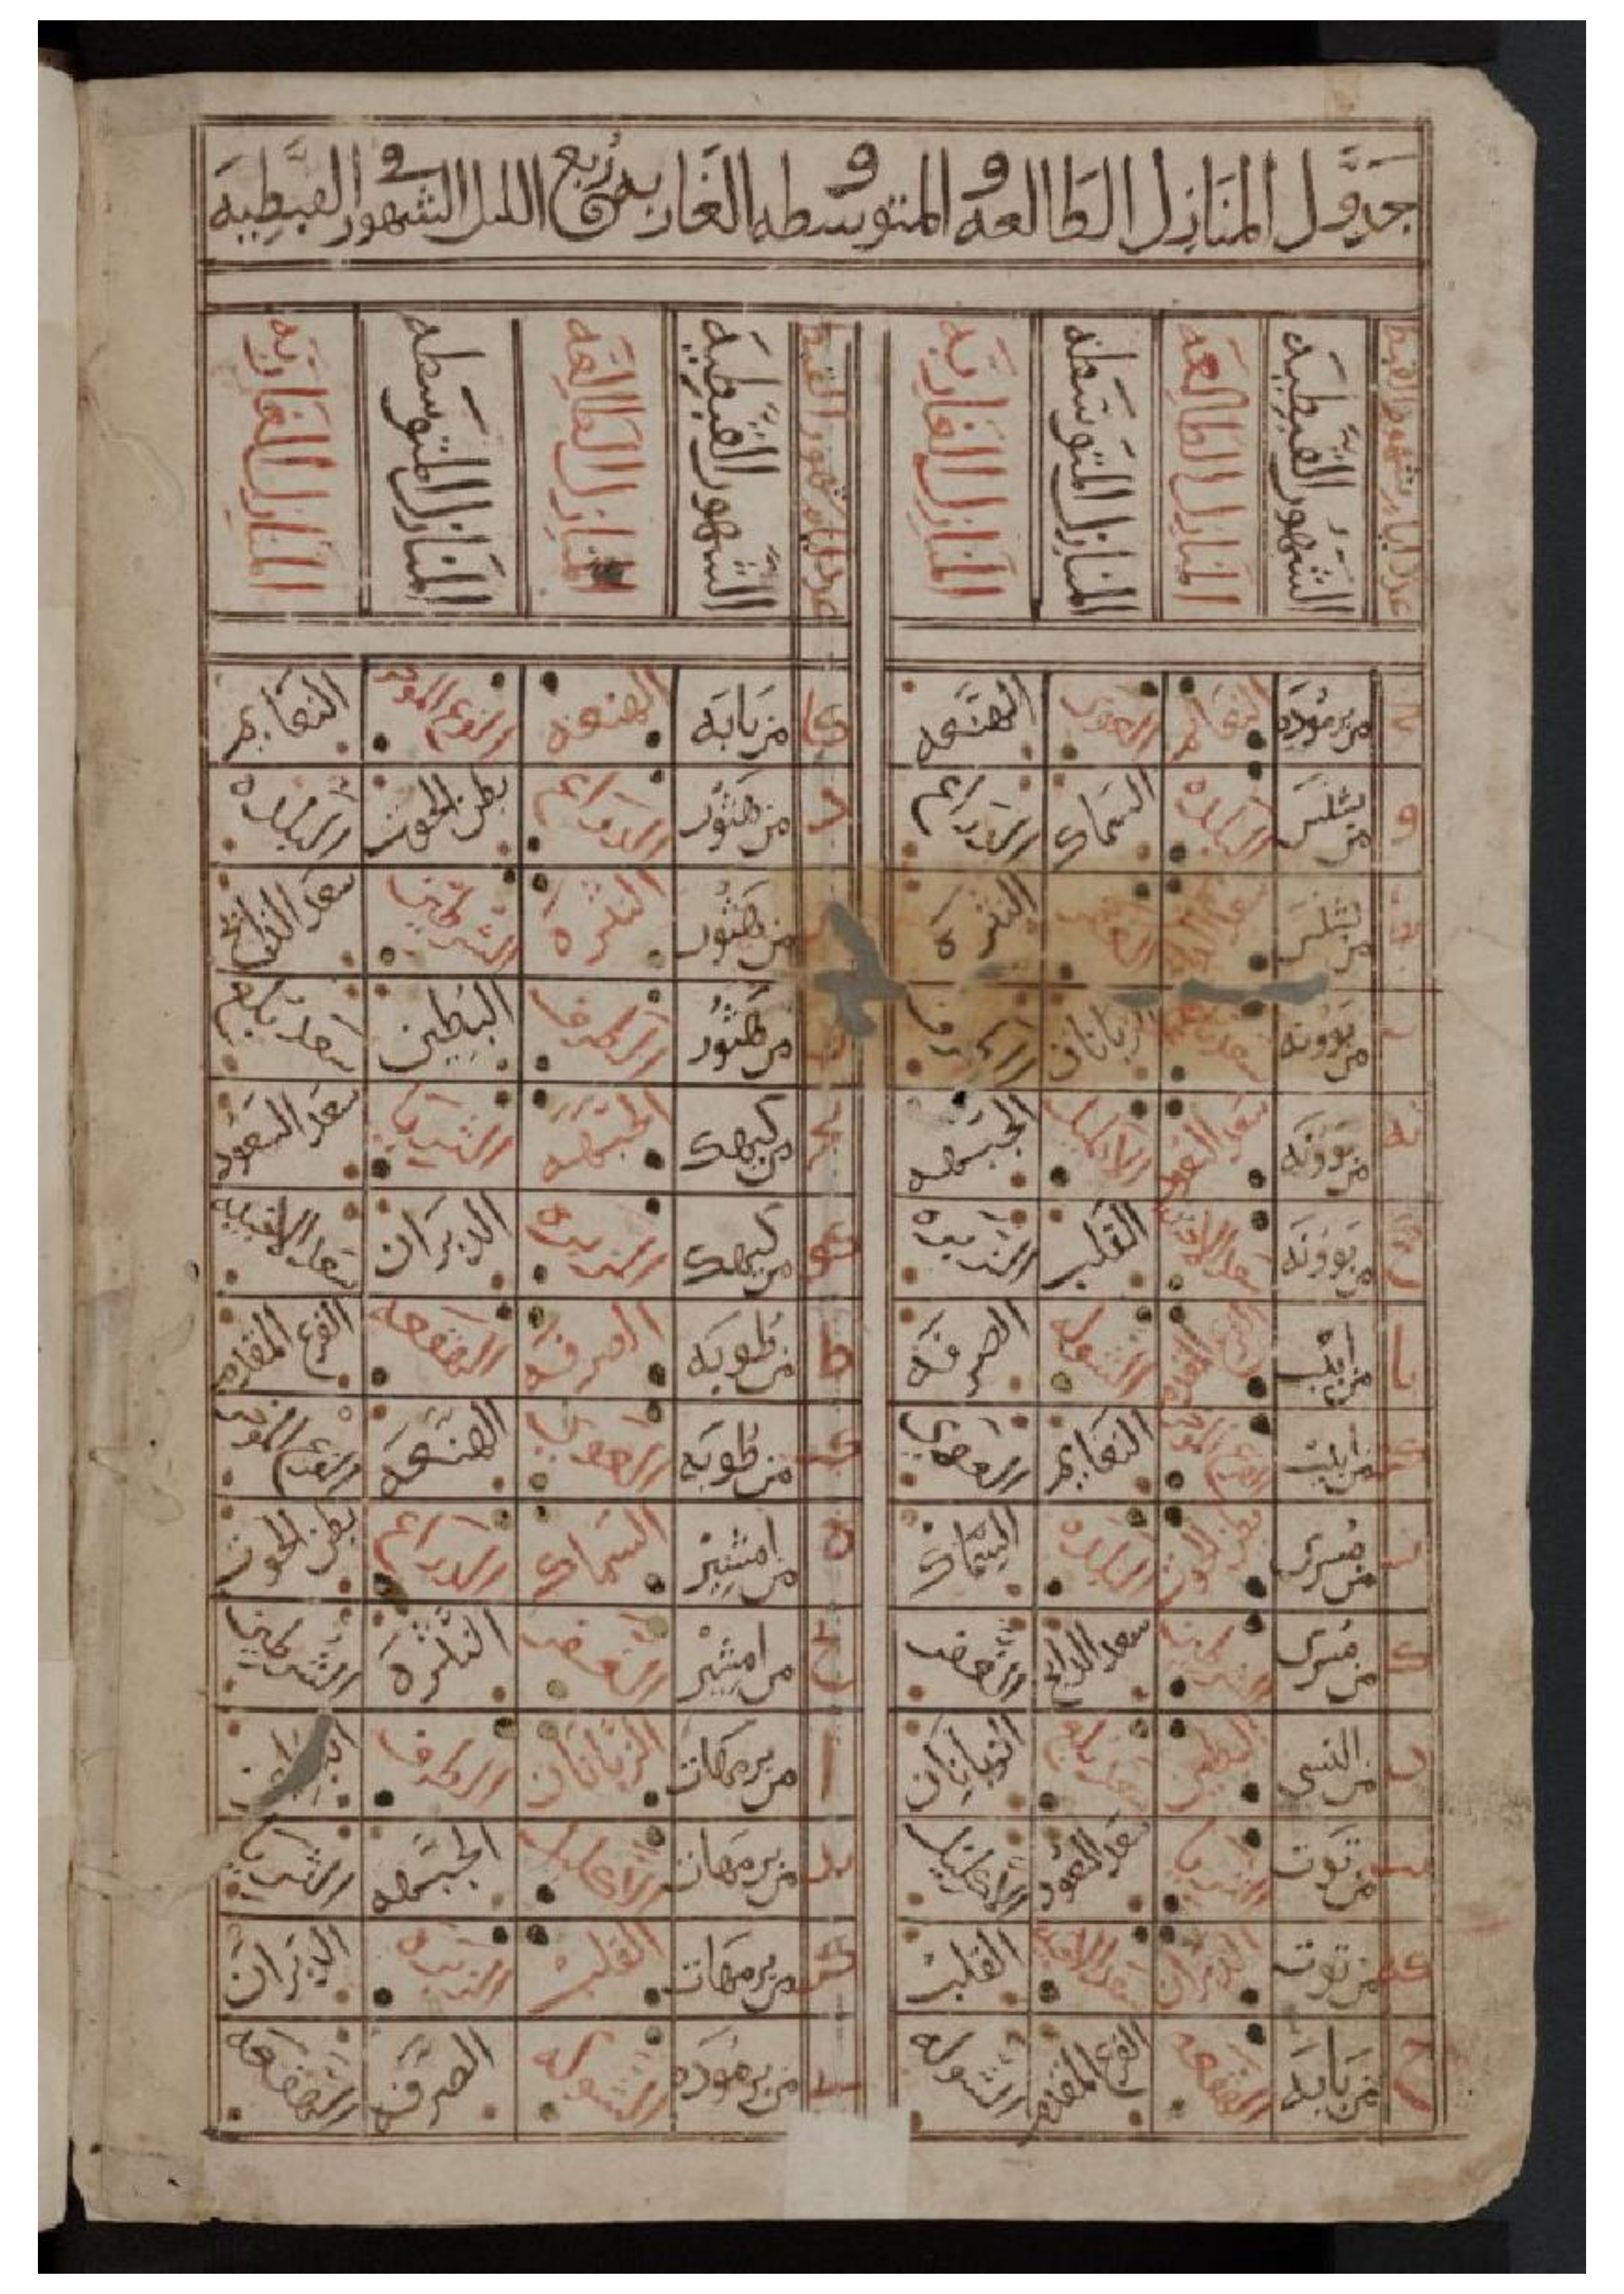 جدول المنازل الطالعه و المتوسطه و الغاربه في ربع الليل الشهور القبطية
عدد ايام شهور القبط الشهور القبطيه المنازل الطالعه المنازل المتوسطه المنازل الغاربه عدد ايام شهور القبط الشهور القبطيه المنازل الطالعه المنازل المتوسطه المنازل الغاربه
من برموده النعايم العوي الهنعه من بابه الهنعه الفرع الموخر النعايم
و من بشنس البلده السماك الدراع د من هتور الدراع بطن الحوت البلده
من بشنس سعد الدابح الغفر النثره من هتور النثره الشرطين سعد الدابح
من بوونه سعد بلع الزبانان الطرف من هتور الطرف البطين سعد بلع
من بوونه سعد السعود الاكليل الجبهه من كيهك الجبهه الثريا سعد السعود
من بوونه سعد الاخبيه القلب الزبره من كيهك الزبره الدبران سعد الاخبيه
يا من ابيب الفرع المقدم الشوله الصرفه ط من طوبه الصرفه الهقعه الفرع المقدم
من ابيب الفرع الموخر النعايم العوي من طوبه العوي الهنعه الفرع الموخر
من مسرى بطن الحوت البلده السماك ه من امشير السماك الدراع بطن الحوت
من مسرى الشرطين سعد الدابح الغفر يح من امشير الغفر النثره الشرطين
من النسي البطين سعد بلع الزبانان ا من برمهات الزبانان الطرف
من توت الثريا سعد السعود الاكليل يد من برمهات الاكليل الجبهه الثريا
من توت الدبران سعد الاخبيه القلب كز من برمهات القلب الزبره الدبران
من بابه الهقعه الفرع المقدم الشوله من برموده الشوله الصرفه الهقعه